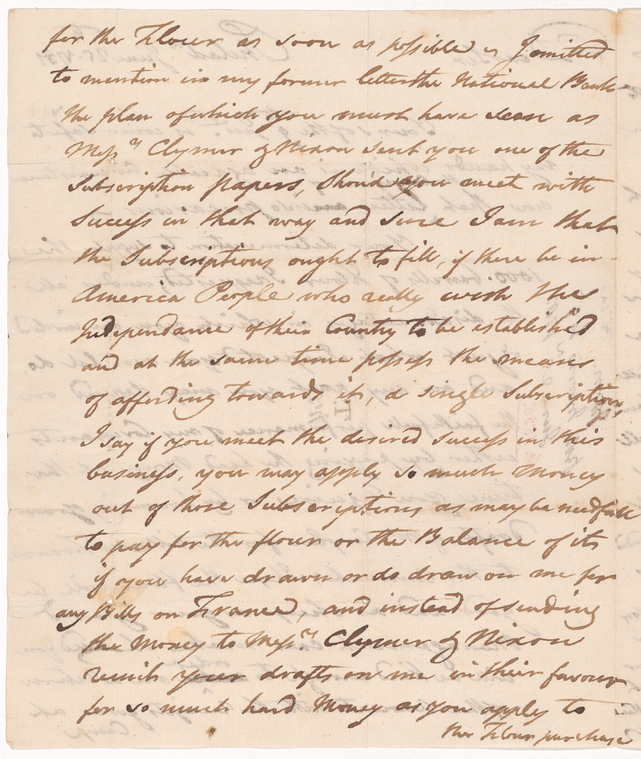 for the Flour as soon as possible. I omitted
to mention in my former letter the National Bank
the plan of which you must have seen as
Mess.rs Clymer & Nixon sent you one of the
Subscription papers, Shou'd you meet with
Success in that way and sure I am that
the Subscriptions ought to fill, if there be in
America People who really wish the
Independance of their Country to be established
and at the same time possess the means
of affording towards it, a single Subscription,
I say if you meet the desired Success in this
business, you may apply so much Money
out of those Subscriptions as may be needfull
to pay for the flour or the Balance of its
if you have drawn or do draw on me for
any Bills on France, and instead of sending
the Money to Mess.rs Clymer & Nixon
remit your drafts on me in their favour
for so much hard Money as you apply to
the Flour purchase